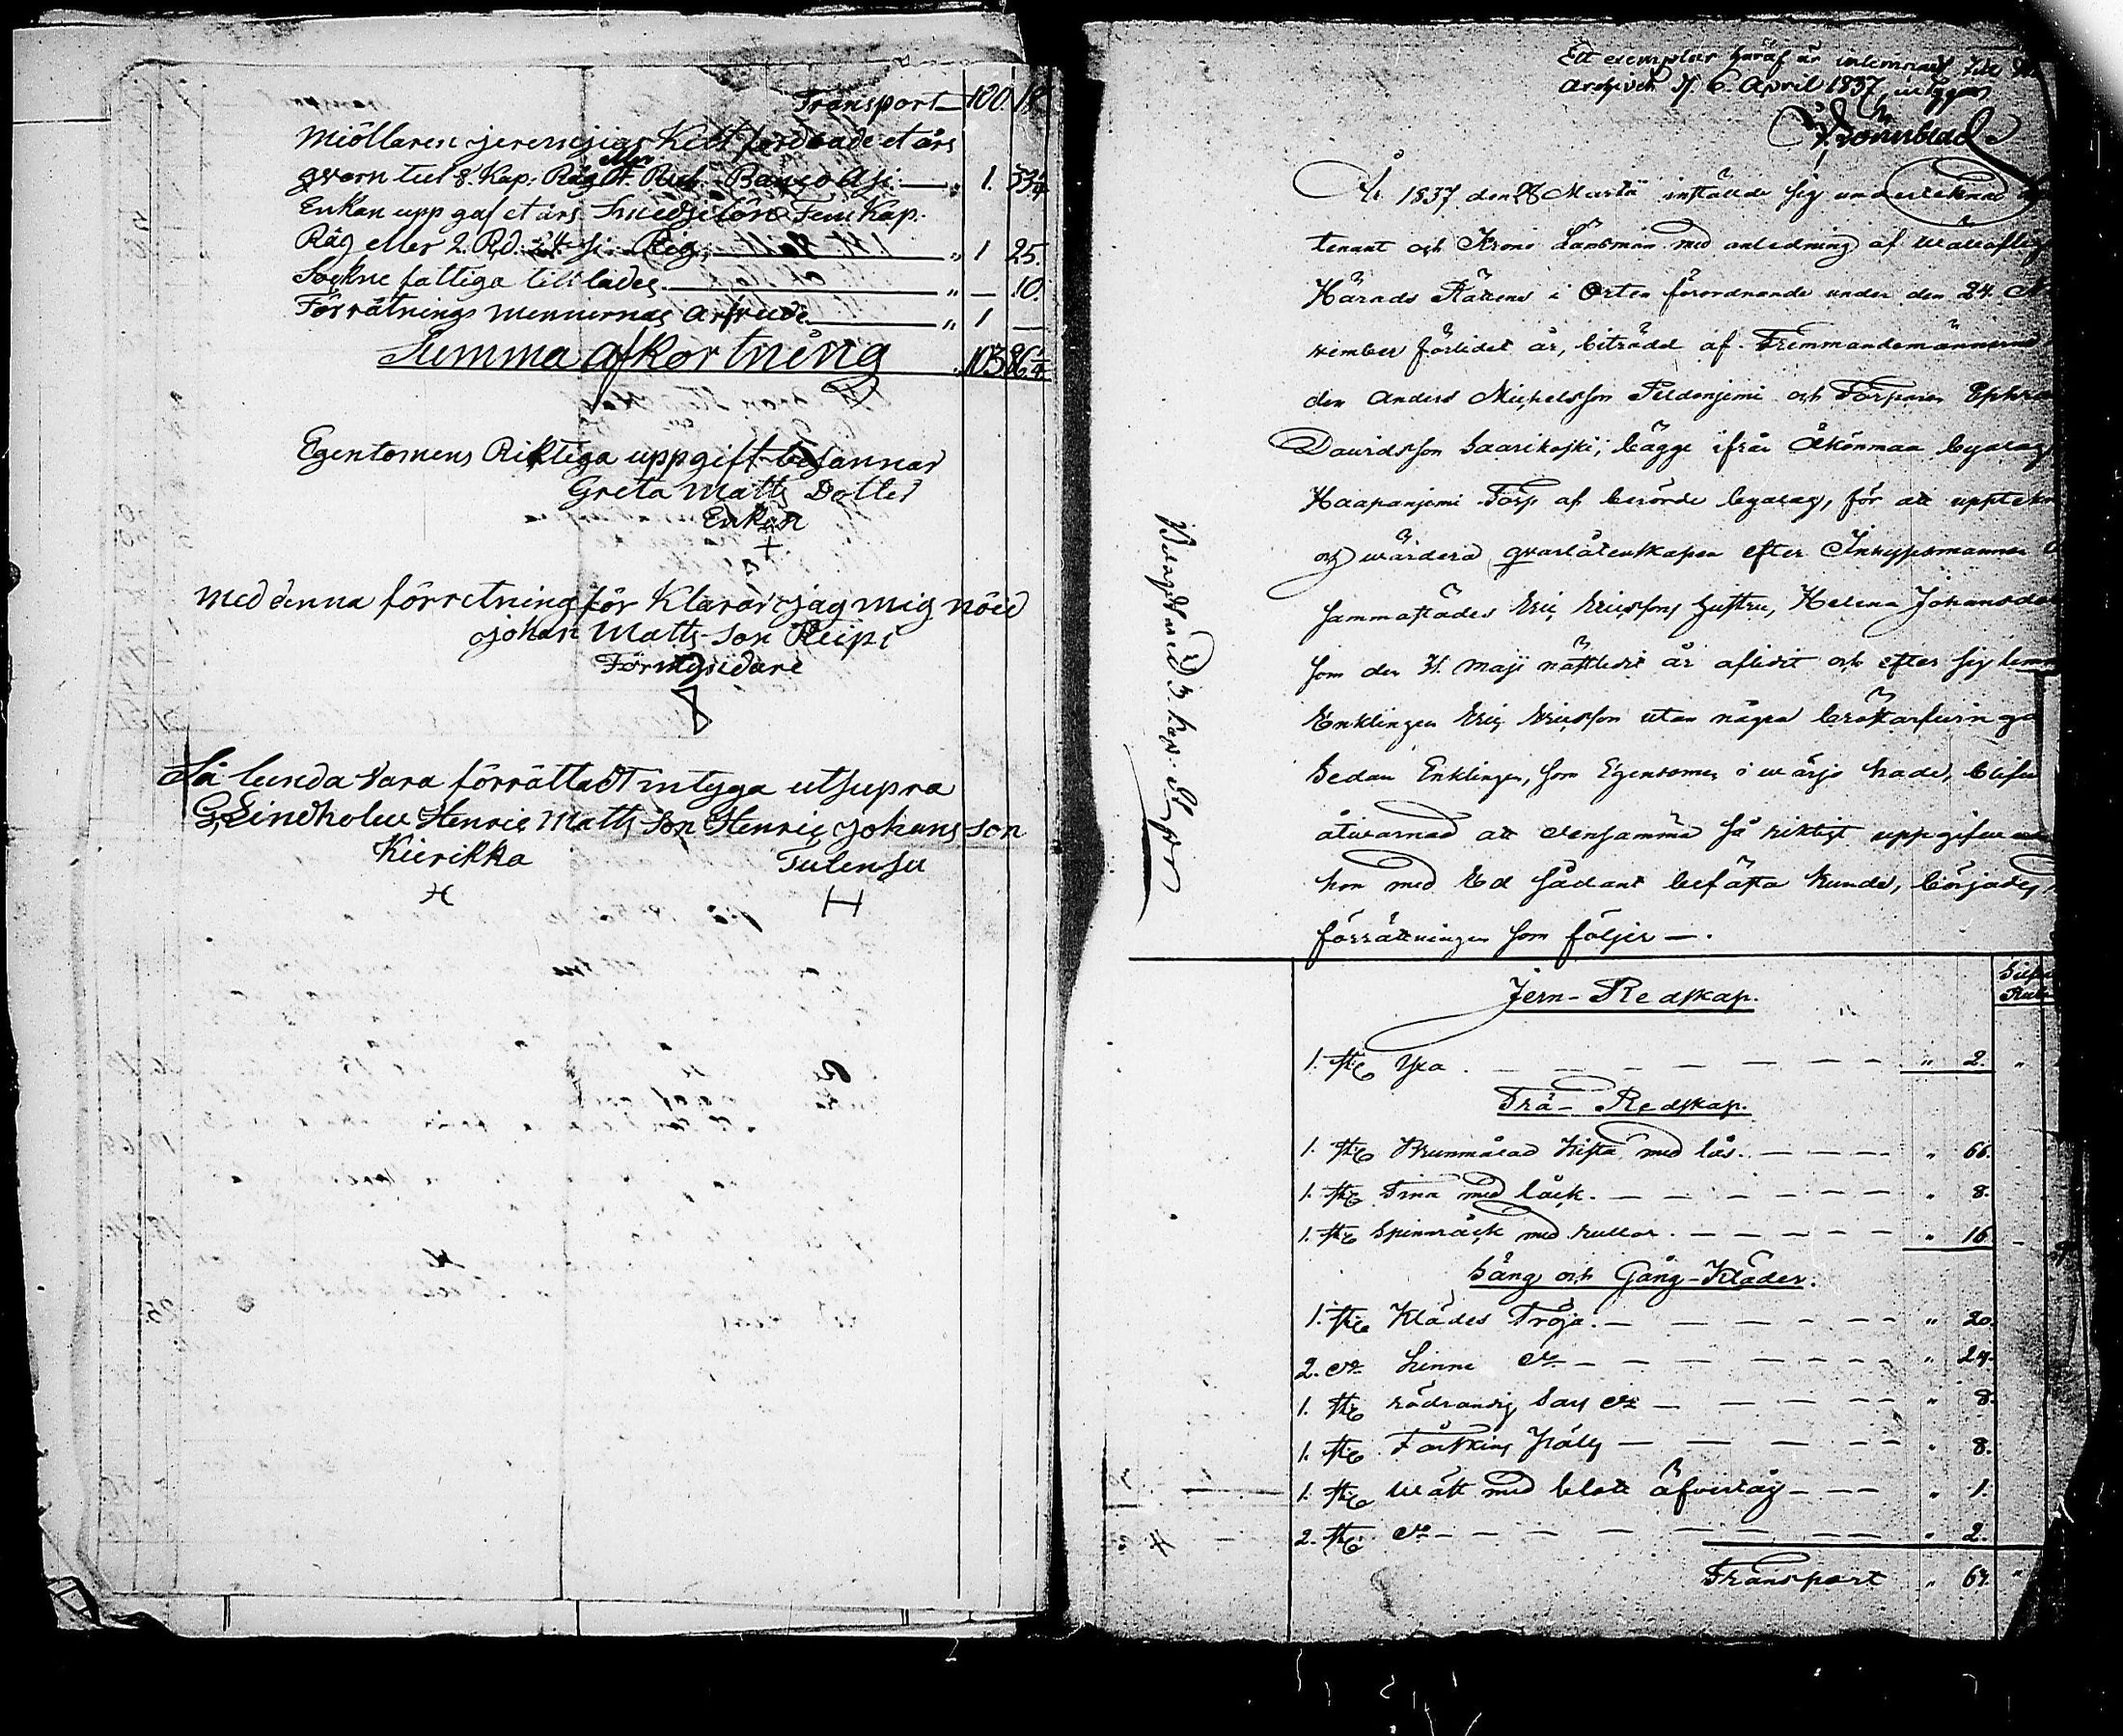 Transport 100. 18
Miöllaren jeremjias Kett fordrade et års
qvarn tul 8. Kap: Råg eller Rub. Banco Asi: „ 1. 33 1/4
Enkan upp gaf et års Smedjelön Fem Kap.
Råg eller 2. Rd. 24 s: Rig: „ 1 25.
Sockne fattiga till lades „ — 10.
Förrätnings mennernas Arfvude „ 1 —
Summa afkortning 103 86 1/4
Egentomens Riktiga uppgift besannar
Greta Matts Dotter
Enkan
+
med dänna förretning för Klarar jag mig nöid
johan Matts son Reipi
Förmyndare
Så lunda vara förrättadt intyga utsupra
G, Lindholm Henric Matts Son Henric johans son
Kierikka Tulensu
H H
Ett exemplar häraf är inlemnadt till
Archivet d. 6. April 1837, intygar
Rönnblad
År 1837 den 28 Martii instälde sig undertecknad
tenant och Krono Länsman med anledning af
Härads Rättens i Orten förordnande under den 24. No
vember förlidet år, biträdd af Nemmandemännerne
den Anders Michelsson Peldonjemi och Torparen Ephra
Davidsson Saarikoski, bägge ifrån Åkönmaa byalag,
Haapanjemi Torp af berörde byalag, för att uppteckn
och wärdera qvarlåtenskapen efter Inhyssmannen
sammastädes Eric Ericssons hustru, Helena Johansdo
som den 31. Maji nästledit år aflidit och efter sig lemn
Enklingen Eric Ericsson utan några bröstarfvingar
Sedan Enklingen, som Egendomen i wärjo hade, blifvit
åtwarnad att densamma så riktigt uppgifva
hon med Ed sådant befästa kunde, börjades
förrättningen som följer —.
Jern-Redskap.
1. st: Yxa „ 2. „
Trä-Redskap.
1. st: Brunmålad Kista med lås. „ 66.
1. st: Tina med låck. „ 8.
1. st: Spinnråck med rullor. „ 16
Säng och Gång-Kläder.
1. st: Klädes Tröja. „ 20.
2. do Linne do „ 24.
1. st: rödrandig do „ 8.
1. st: Fårskins „ 8.
1. st: med blått öfvertåg „ 1.
2. st: do „ 2.
Transport „ 67. „